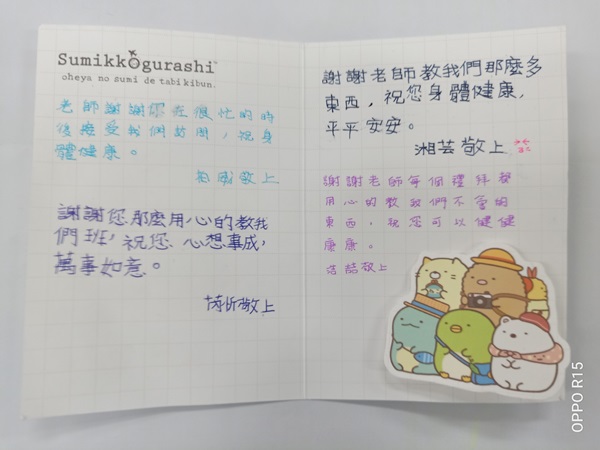 Sumikkogurashi™
oheya no sumi de tabikibun.
老師謝謝你在很忙的時
後接受我們訪問，祝身
體健康。
敬上
謝謝您那麼用心的教我
們班，祝您、心想事成，
萬事如意。
芮忻敬上
謝謝老師教我們那麼多
東西，祝您身體健康，
平平安安。
湘芸敬上
謝謝老師每個禮拜都
用心的教我們不會的
東西，祝您可以健健
康康。
敬上
OPPO R15